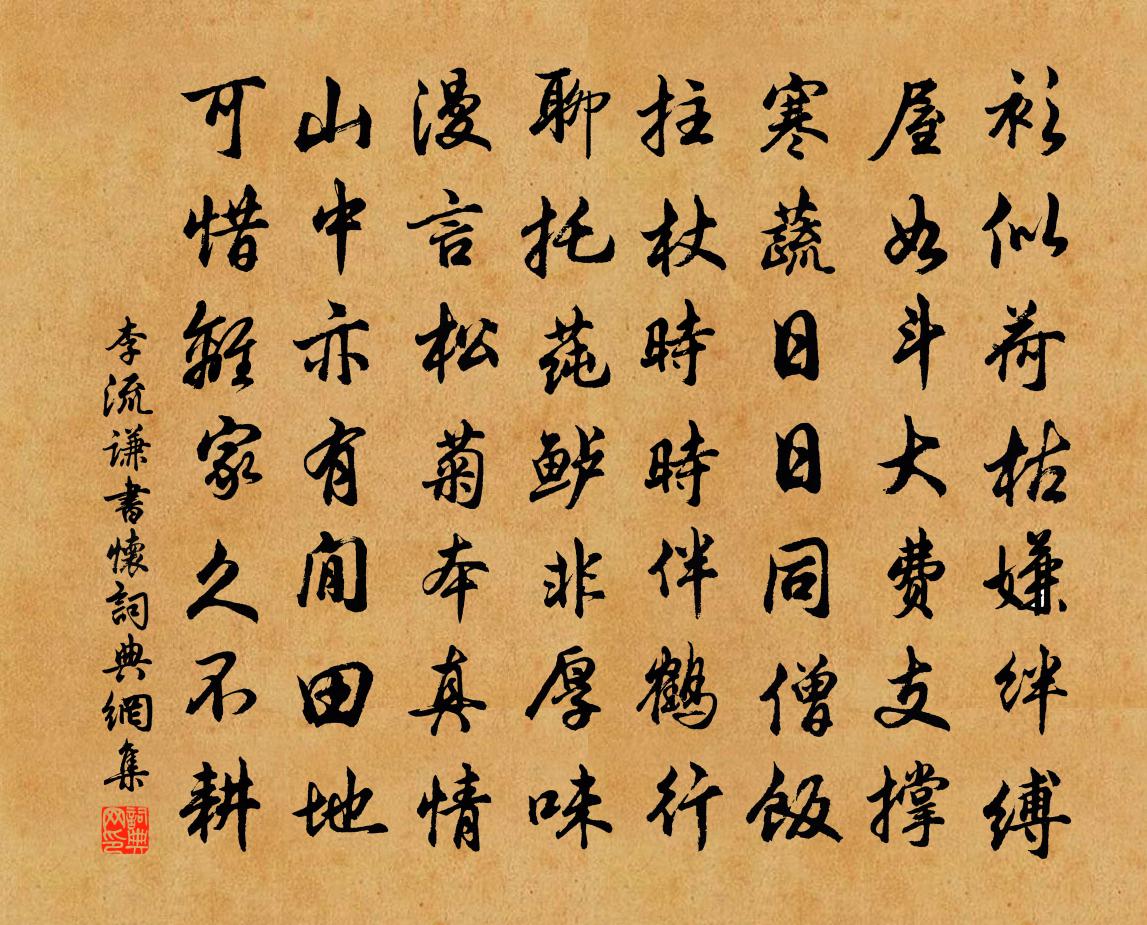 衫似荷枯嫌絆縛
屋如斗大費支撐
寒蔬日日同僧飯
拄杖時時伴鶴行
聊托蒓鲈非厚味
漫言松菊本真情
山中亦有閒田地
可惜離家久不耕
李流謙書懷詞典網集
詞典网印